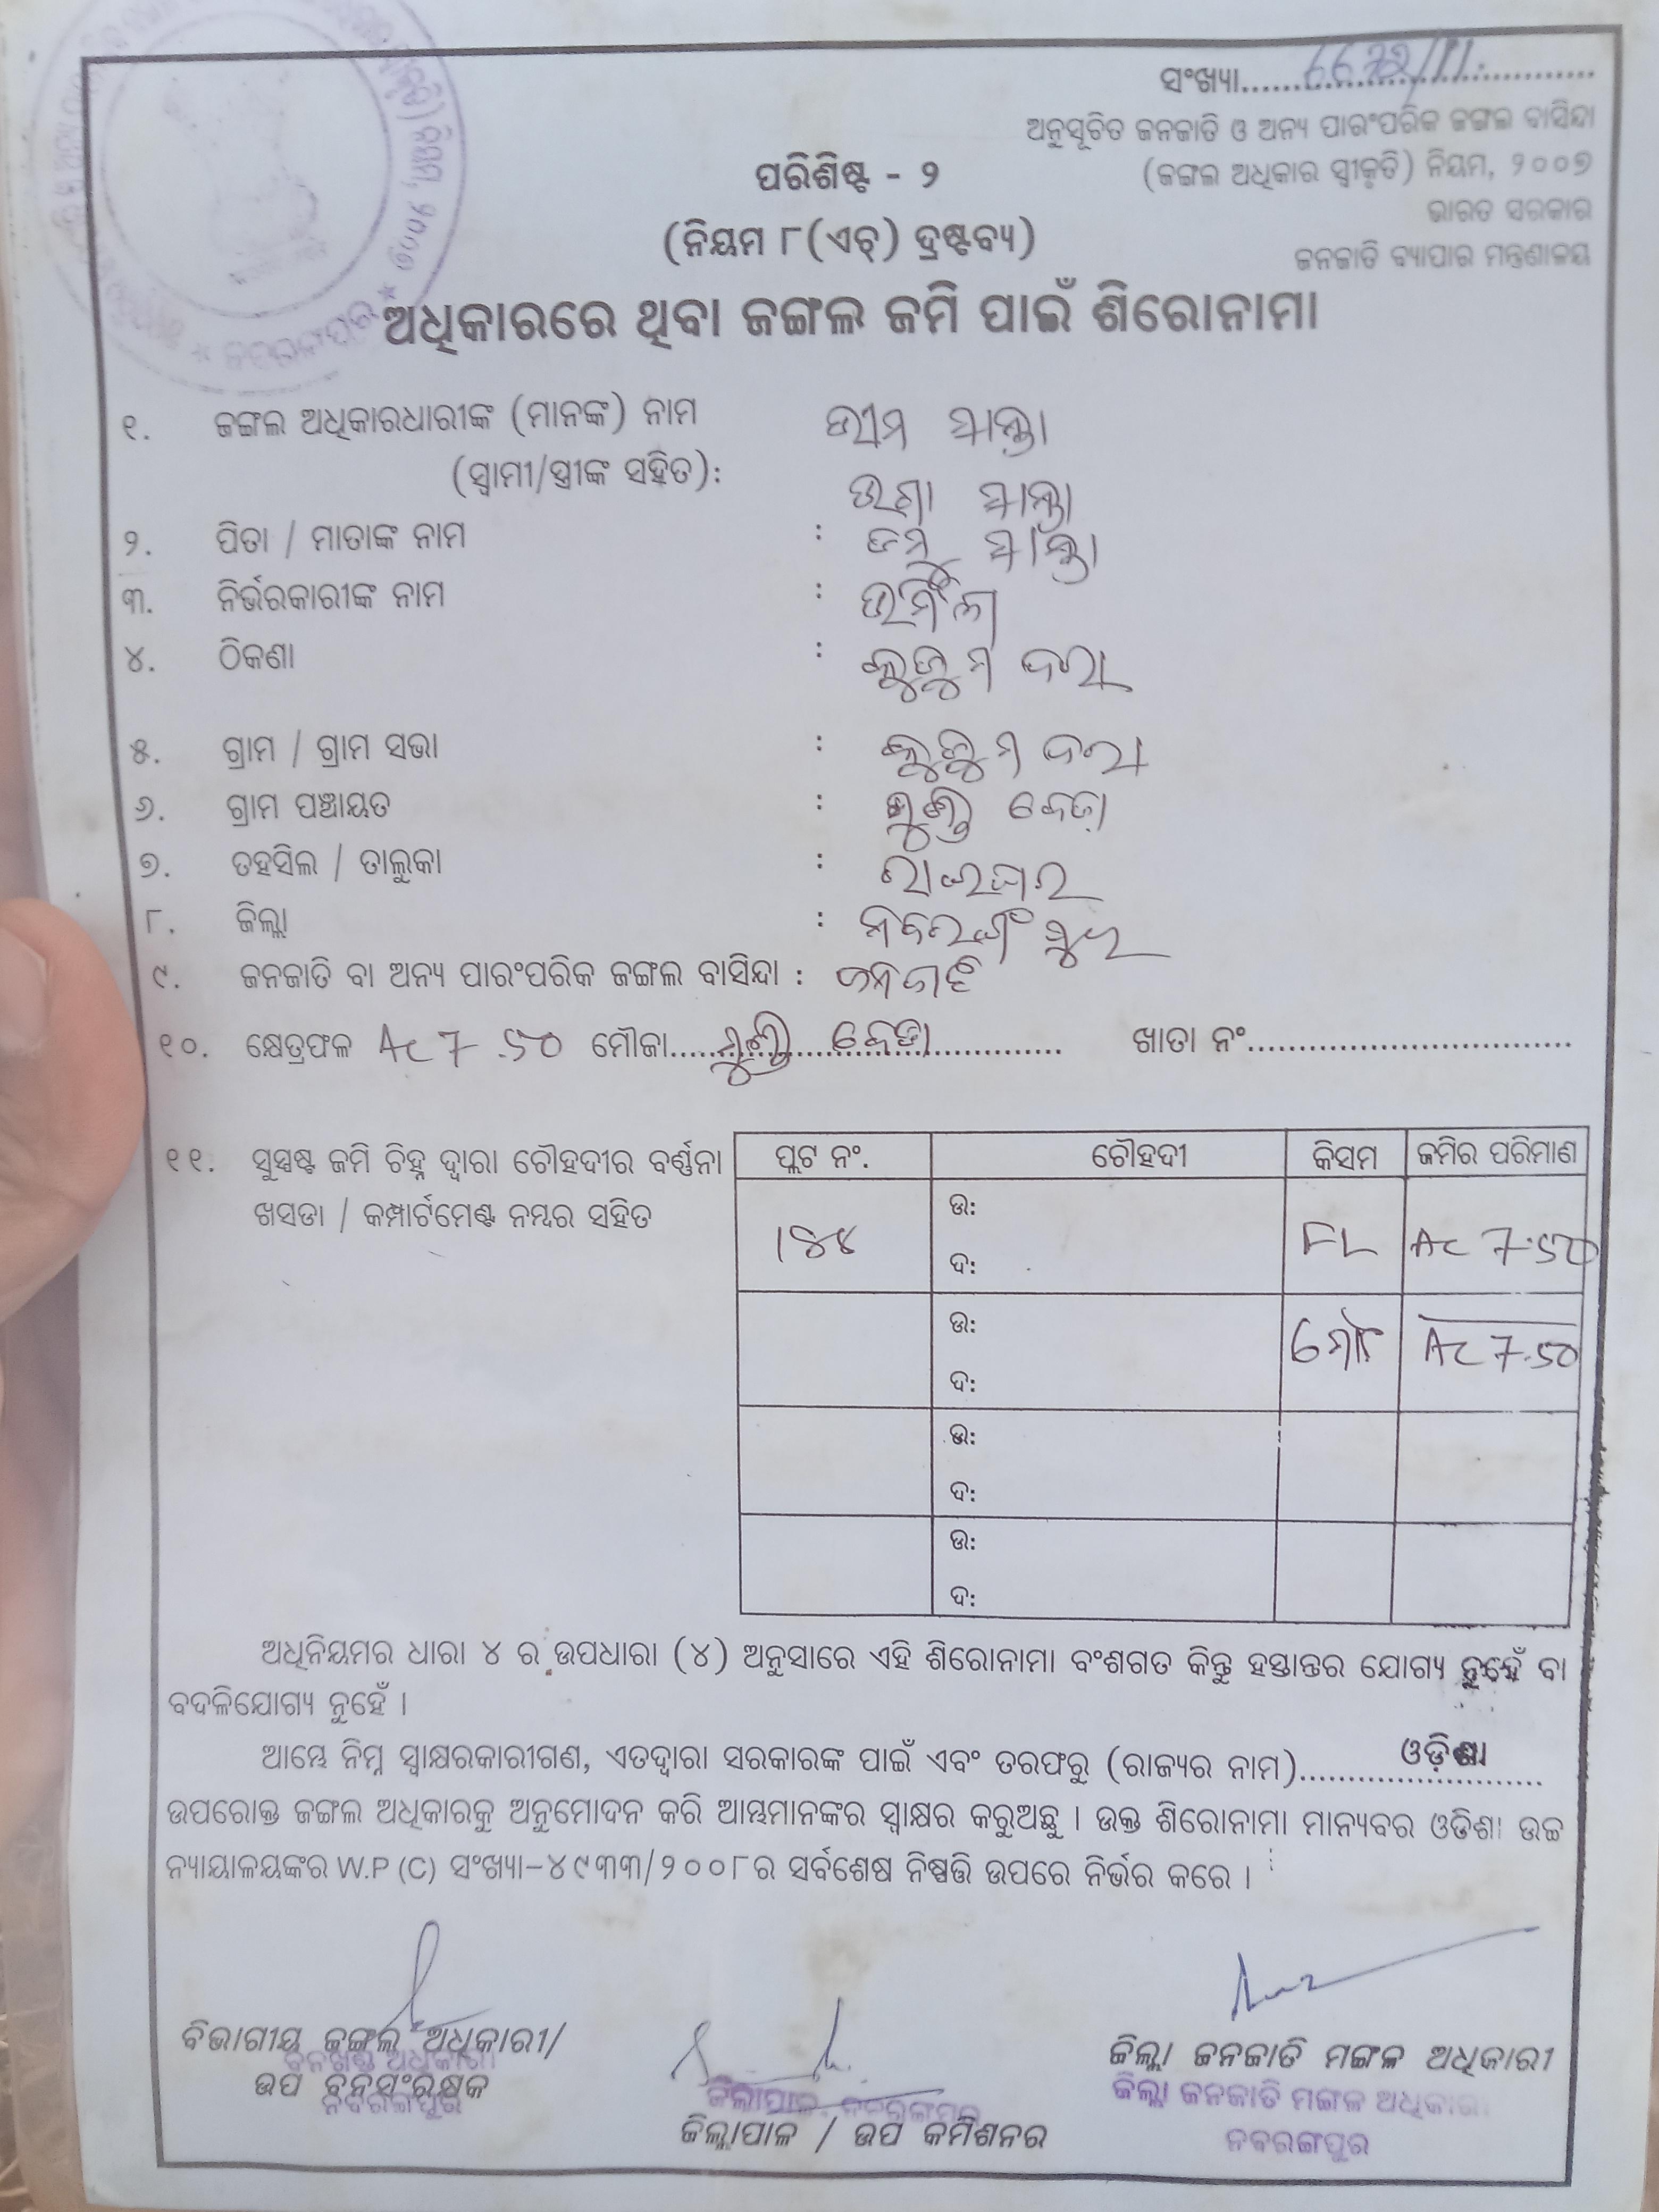 ସଂଖ୍ୟା
ଅନୁସୂଚିତ ଜନଜାତି ଓ ଅନ୍ୟ ପାରଂପରିକ ଜଙ୍ଗଲ ବାସିନ୍ଦା
(ଜଙ୍ଗଲ ଅଧିକାର ସ୍ୱୀକୃତି) ନିୟମ, ୨୦୦୭
ଭାରତ ସରକାର
ଜନଜାତି ବ୍ୟାପାର ମନ୍ତ୍ରଣାଳୟ
ପରିଶିଷ୍ଟ - ୨
(ନିୟମ ୮(ଏଚ୍) ଦ୍ରଷ୍ଟବ୍ୟ)
ଅଧିକାରରେ ଥିବା ଜଙ୍ଗଲ ଜମି ପାଇଁ ଶିରୋନାମା
୧. ଜଙ୍ଗଲ ଅଧିକାରଧାରୀଙ୍କ (ମାନଙ୍କ) ନାମ
(ସ୍ୱାମୀ/ସ୍ତ୍ରୀଙ୍କ ସହିତ):
୨. ପିତା / ମାତାଙ୍କ ନାମ :
୩. ନିର୍ଭରକାରୀଙ୍କ ନାମ : ଉର୍ମିଳା
୪. ଠିକଣା :
୫. ଗ୍ରାମ / ଗ୍ରାମ ସଭା :
୬. ଗ୍ରାମ ପଞ୍ଚାୟତ :
୭. ତହସିଲ / ତାଲୁକା : ରାଇଘର
୮. ଜିଲ୍ଲା : ନବରଙ୍ଗପୁର
୯. ଜନଜାତି ବା ଅନ୍ୟ ପାରଂପରିକ ଜଙ୍ଗଲ ବାସିନ୍ଦା : ଜନଜାତି
୧୦. କ୍ଷେତ୍ରଫଳ Ac 7.50 ମୌଜା ଖାତା ନଂ
୧୧. ସୁସ୍ପଷ୍ଟ ଜମି ଚିହ୍ନ ଦ୍ୱାରା ଚୌହଦୀର ବର୍ଣ୍ଣନା
ଖସଡା / କମ୍ପାର୍ଟମେଣ୍ଟ ନମ୍ବର ସହିତ
ପ୍ଲଟ ନଂ. ଚୌହଦୀ କିସମ ଜମିର ପରିମାଣ
ଉ:
FL Ac 7.50
ଦ:
ଉ:
ମୋଟ Ac 7.50
ଦ:
ଉ:
ଦ:
ଉ:
ଦ:
ଅଧିନିୟମର ଧାରା ୪ ର ଉପଧାରା (୪) ଅନୁସାରେ ଏହି ଶିରୋନାମା ବଂଶଗତ କିନ୍ତୁ ହସ୍ତାନ୍ତର ଯୋଗ୍ୟ ନୁହେଁ ବା
ବଦଳିଯୋଗ୍ୟ ନୁହେଁ ।
ଆମ୍ଭେ ନିମ୍ନ ସ୍ୱାକ୍ଷରକାରୀଗଣ, ଏତଦ୍ଦ୍ୱାରା ସରକାରଙ୍କ ପାଇଁ ଏବଂ ତରଫରୁ (ରାଜ୍ୟର ନାମ) ଓଡ଼ିଶା
ଉପରୋକ୍ତ ଜଙ୍ଗଲ ଅଧିକାରକୁ ଅନୁମୋଦନ କରି ଆମ୍ଭମାନଙ୍କର ସ୍ୱାକ୍ଷର କରୁଅଛୁ । ଉକ୍ତ ଶିରୋନାମା ମାନ୍ୟବର ଓଡିଶା ଉଚ୍ଚ
ନ୍ୟାୟାଳୟଙ୍କର W.P (C) ସଂଖ୍ୟା-୪୯୩୩/୨୦୦୮ର ସର୍ବଶେଷ ନିଷ୍ପତ୍ତି ଉପରେ ନିର୍ଭର କରେ ।
ବିଭାଗୀୟ ଜଙ୍ଗଲ ଅଧିକାରୀ/
ବନଖଣ୍ଡ ଅଧିକାରୀ
ଉପ ବନସଂରକ୍ଷକ
ନବରଙ୍ଗପୁର
ଜିଲ୍ଲାପାଳ, ନବରଙ୍ଗପୁର
ଜିଲ୍ଲାପାଳ / ଉପ କମିଶନର
ଜିଲ୍ଲା ଜନଜାତି ମଙ୍ଗଳ ଅଧିକାରୀ
ଜିଲ୍ଲା ଜନଜାତି ମଙ୍ଗଳ ଅଧିକାରୀ
ନବରଙ୍ଗପୁର